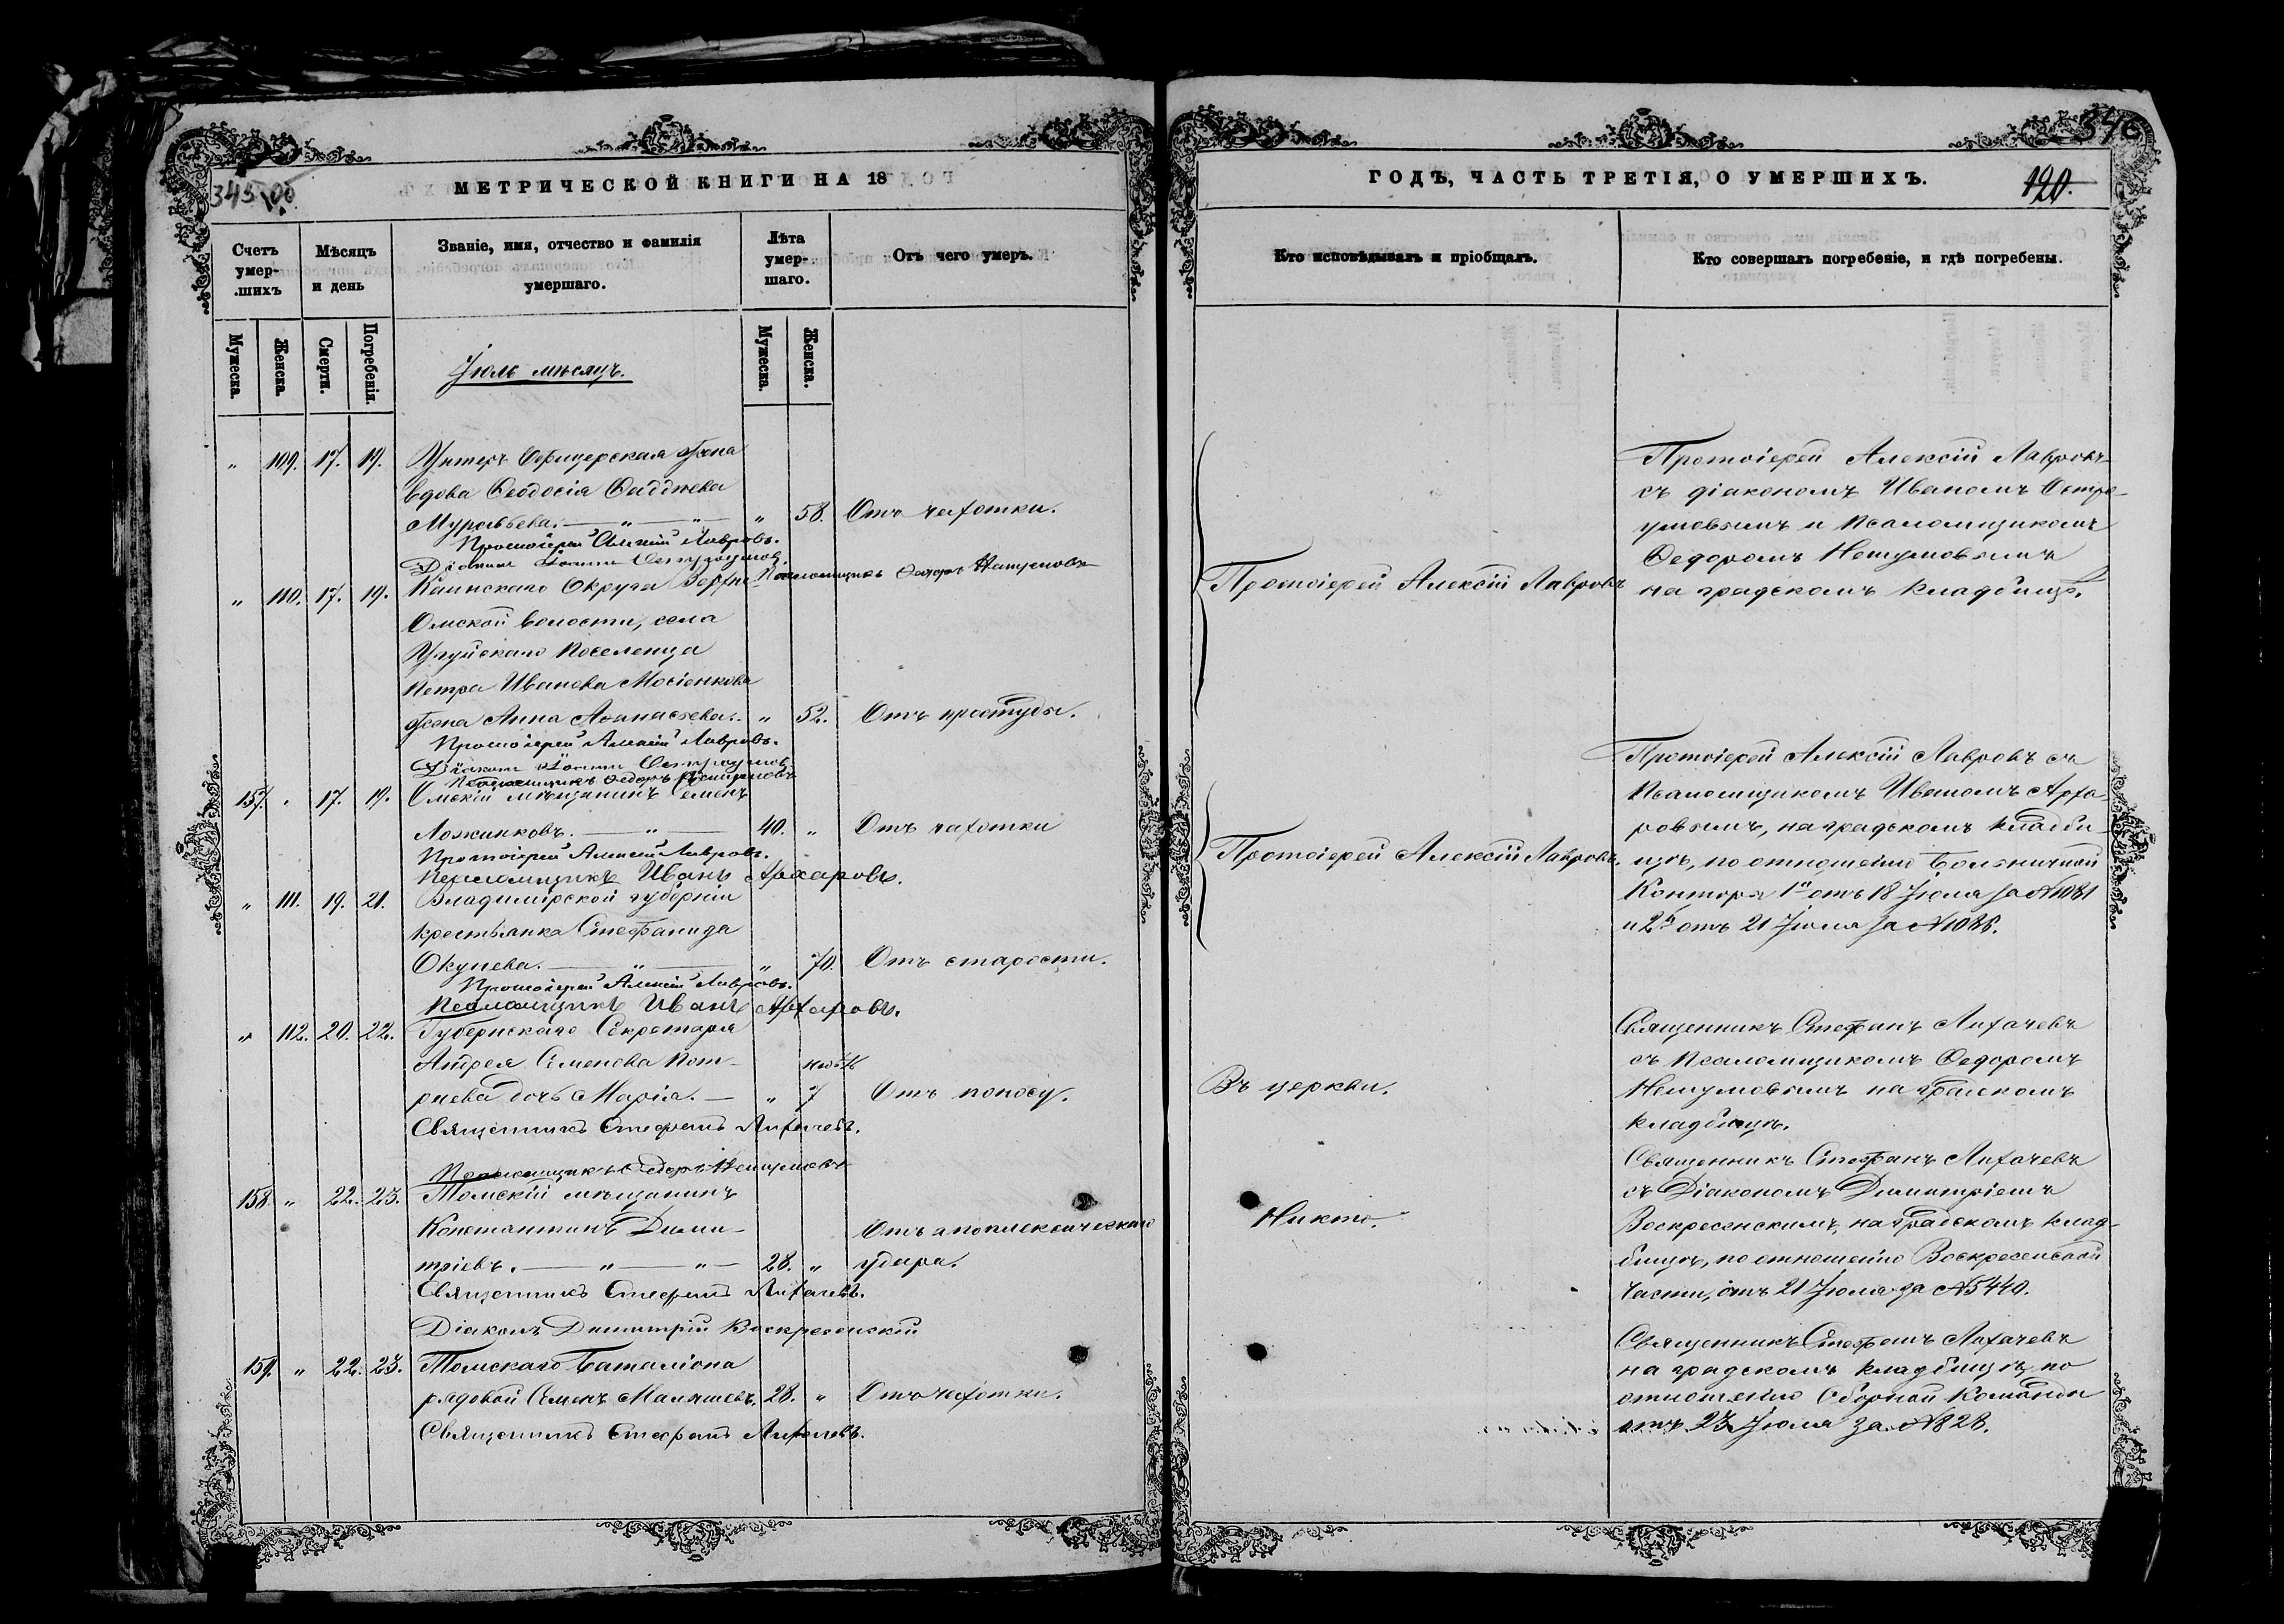 345 об.
МЕТРИЧЕСКОЙ КНИГИ НА 18
Счетъ умер-шихъ
Мѣсяцъ и день
Званіе, имя, отчество и фамилія умершаго.
Лѣта умер-шаго.
Отъ чего умеръ.
Мужеска. Женска. Смерти. Погребенія. Мужеска. Женска.
Іюль мѣсяцъ.
" 109. 17. 19. Унтеръ Офицерская жена
вдова Ѳеодосія
Муравьева. — " — " — " 58. Отъ чахотки.
Протоіерей Алексій Лавровъ.
Діаконъ Іоаннъ Остроумовъ.
Псаломщикъ Ѳедоръ Неупумовъ
" 110. 17. 19. Каинскаго Округа
Омской волости, села
Поселенца
Петра Иванова
жена Анна Аѳанасьева. " 52. Отъ простуды.
Протоіерей Алексій Лавровъ.
Діаконъ Іоаннъ Остроумовъ
Псаломщикъ Ѳедоръ
157. " 17. 19. Омскій мѣщанинъ Семенъ
Ложниковъ. — " — 40. " Отъ чахотки
Протоіерей Алексій Лавровъ.
Псаломщикъ Иванъ Архаровъ.
" 111. 19. 21. Владимірской губерніи
крестьянка Стефанида
Окунева. — " — " 70. Отъ старости.
Протоіерей Алексій Лавровъ.
Псаломщикъ Иванъ Архаровъ.
" 112. 20. 22. Губернскаго Секретаря
Андрея Семенова
дочь Марія. — " 7 Отъ поносу.
Священникъ Стефанъ Лихачевъ.
Псаломщикъ Ѳедоръ
158. " 22. 23. Томскій мѣщанинъ
Константинъ Дими- Отъ апоплексическаго
тріевъ. — " — " — 28. " удара.
Священникъ Стефанъ Лихачевъ.
Діаконъ Димитрій Воскресенскій
159. " 22. 23. Томскаго Баталіона
рядовой Семенъ Малышевъ. 28. " Отъ чахотки.
Священникъ Стефанъ Лихачевъ.
346
ГОДЪ, ЧАСТЬ ТРЕТІЯ, О УМЕРШИХЪ.
120.
Кто исповѣдывалъ и пріобщалъ.
Кто совершалъ погребеніе, и гдѣ погребены.
Протоіерей Алексій Лавровъ
Протоіерей Алексій Лавровъ
съ діакономъ Иваномъ Остро-
умовымъ и Псаломщикомъ
Ѳедоромъ
на градскомъ кладбищѣ.
Протоіерей Алексій Лавровъ.
Протоіерей Алексій Лавровъ съ
Псаломщикомъ Иваномъ Арха
ровымъ, на градскомъ кладби-
щѣ, по отношенію Больничной
Конторы 1е отъ 18 Іюля за № 1081
и 2е отъ 21 Іюля за № 1086.
Въ церкви.
Священникъ Стефанъ Лихачевъ
съ Псаломщикомъ Ѳедоромъ
на градскомъ
кладбищѣ.
Никто.
Священникъ Стефанъ Лихачевъ
съ Діакономъ Димитріемъ
Воскресенскимъ, на градскомъ клад-
бищѣ, по отношенію Воскресенской
Части, отъ 21 Іюля за № 5440.
Священникъ Стефанъ Лихачевъ
на градскомъ кладбищѣ, по
отношенію Сборной Команды
отъ 23 Іюля за № 828.